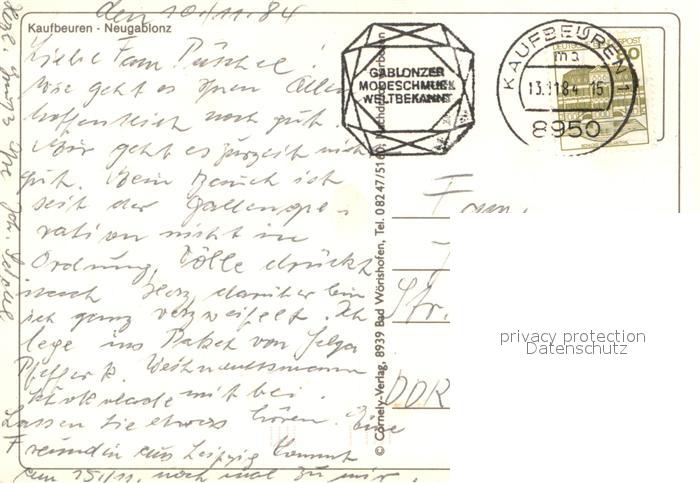 den 10./11. 84
Kaufbeuren - Neugablonz
Liebe Fam. Püschel!
Wie geht es Ihnen Allen
hoffentlich noch gut
Mir geht es zurzeit nicht
gut. Mein Bauch ist
seit der Gallenope-
ration nicht in
Ordnung, Völle drückt
nach Herz, darüber bin
ich ganz verzweifelt. Ich
lege ins Paket von Helga
Pfefferk. Weihnachtsmann
Schokolade mit bei.
Lassen Sie etwas hören. Eine
Freundin aus Leipzig kommt
am 15./11. noch mal zu mir.
GABLONZER
MODESCHMUCK
WELTBEKANNT
KAUFBEUREN 1
ma
13.11.84-15
8950
DEUTSCHE BUNDESPOST
© Cornely-Verlag, 8939 Bad Wörishofen, Tel. 08247/5160, Nachdruck verboten
Fam.
Str.
DDR
privacy protection
Datenschutz